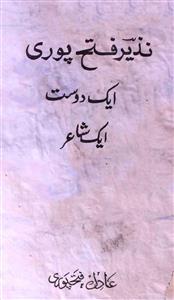 نذیر فتح پوری
ایک دوست
ایک شاعر
عادل فتحپوری